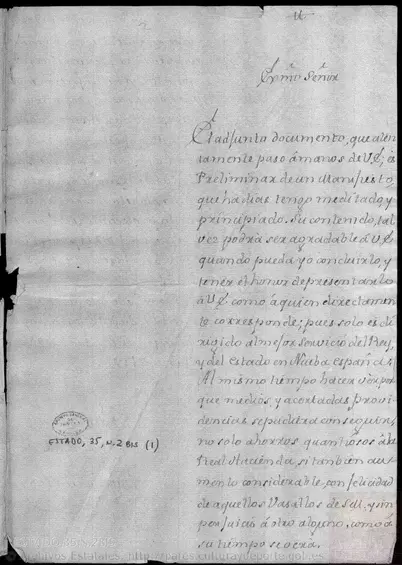 Exmo. Señor
El adjunto documento, que aten
tamente paso â manos de VE, es
Preliminar de un Manifiesto
que ha dias tengo meditado, y
principiado. Su contenido, tal
vez podrá ser agradable â VE
quando pueda yo concluirlo, y
tener el honor de presentarlo
â VE como â quien directamen
te corresponde; pues solo es di
rigido al mejor servicio del Rey,
y del estado en Nueba españa.
Al mismo tiempo hacer ver por
que medios, y acordadas provi
dencias se pudiera conseguir,
no solo ahorros quantiosos â la
Real Hacienda, si tambien au
mento considerable, con felicidad
de aquellos Vasallos de SM, y sin
perjuicio â otro alguno, como â
su tiempo se verá.
ESTADO, 35, N. 2 BIS (1)